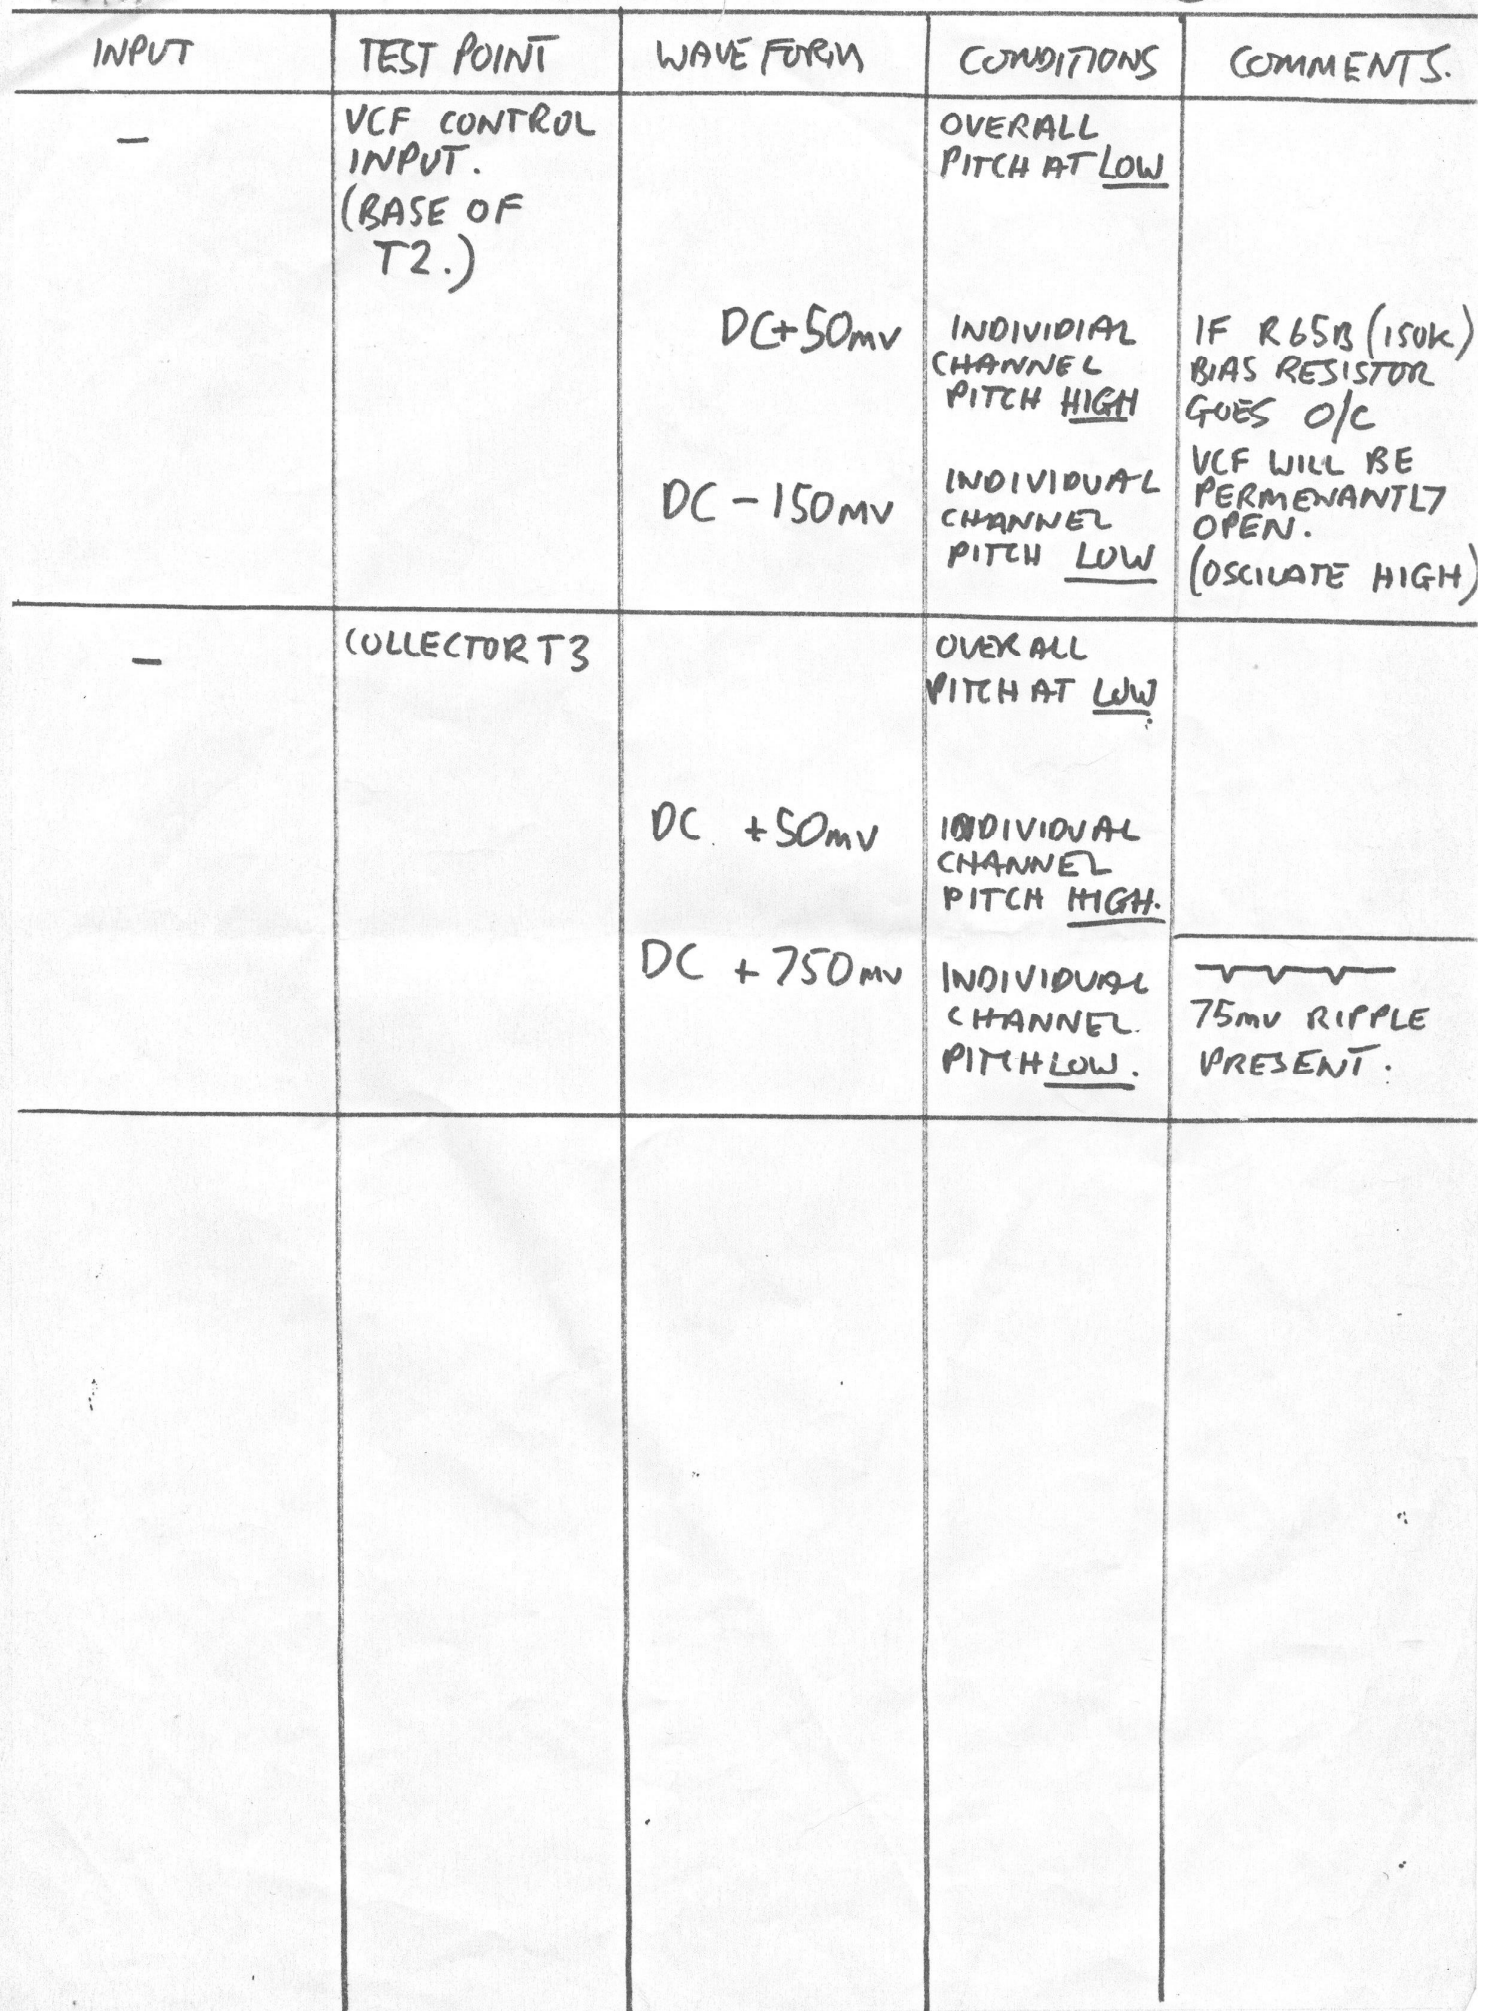 INPUT TEST POINT WAVE FORM CONDITIONS COMMENTS.
– VCF CONTROL INPUT. (BASE OF T2.)
OVERALL
PITCH AT LOW
DC+50mv
INDIVIDIAL
CHANNEL
PITCH HIGH
IF R65B (150K)
BIAS RESISTOR
GOES O/C
VCF WILL BE
PERMENANTLY
OPEN.
(OSCILATE HIGH)
DC -150mv
INDIVIDUAL
CHANNEL
PITCH LOW
– COLLECTOR T3
OVERALL
PITCH AT LOW
DC. +50mv
INDIVIDUAL
CHANNEL
PITCH HIGH.
DC +750mv
INDIVIDUAL
CHANNEL.
PITCH LOW.
75mv RIPPLE
PRESENT.